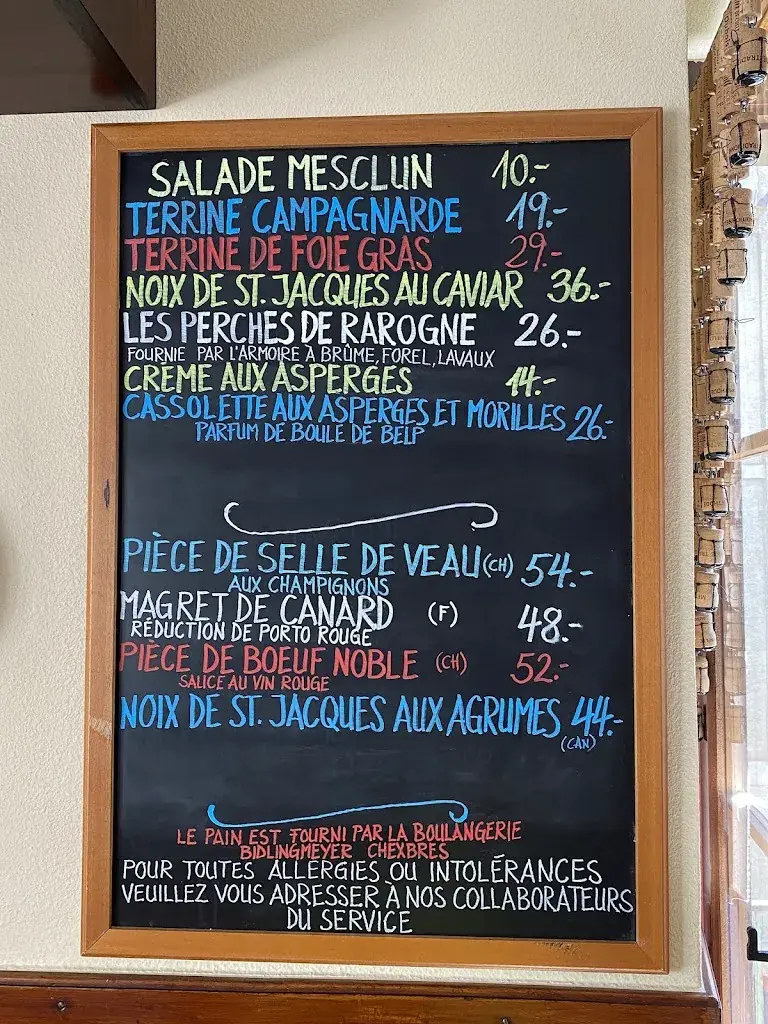 SALADE MESCLUN 10.-
TERRINE CAMPAGNARDE 19.-
TERRINE DE FOIE GRAS 29.-
NOIX DE ST. JACQUES AU CAVIAR 36.-
LES PERCHES DE RAROGNE 26.-
FOURNIE PAR L'ARMOIRE À BRÛME, FOREL, LAVAUX
CRÈME AUX ASPERGES 14.-
CASSOLETTE AUX ASPERGES ET MORILLES 26.-
PARFUM DE BOULE DE BELP
PIÈCE DE SELLE DE VEAU (CH) 54.-
AUX CHAMPIGNONS
MAGRET DE CANARD (F) 48.-
RÉDUCTION DE PORTO ROUGE
PIÈCE DE BOEUF NOBLE (CH) 52.-
SALICE AU VIN ROUGE
NOIX DE ST. JACQUES AUX AGRUMES 44.-
(CAN)
LE PAIN EST FOURNI PAR LA BOULANGERIE
BIDLINGMEYER CHEXBRES
POUR TOUTES ALLERGIES OU INTOLÉRANCES
VEUILLEZ VOUS ADRESSER À NOS COLLABORATEURS
DU SERVICE